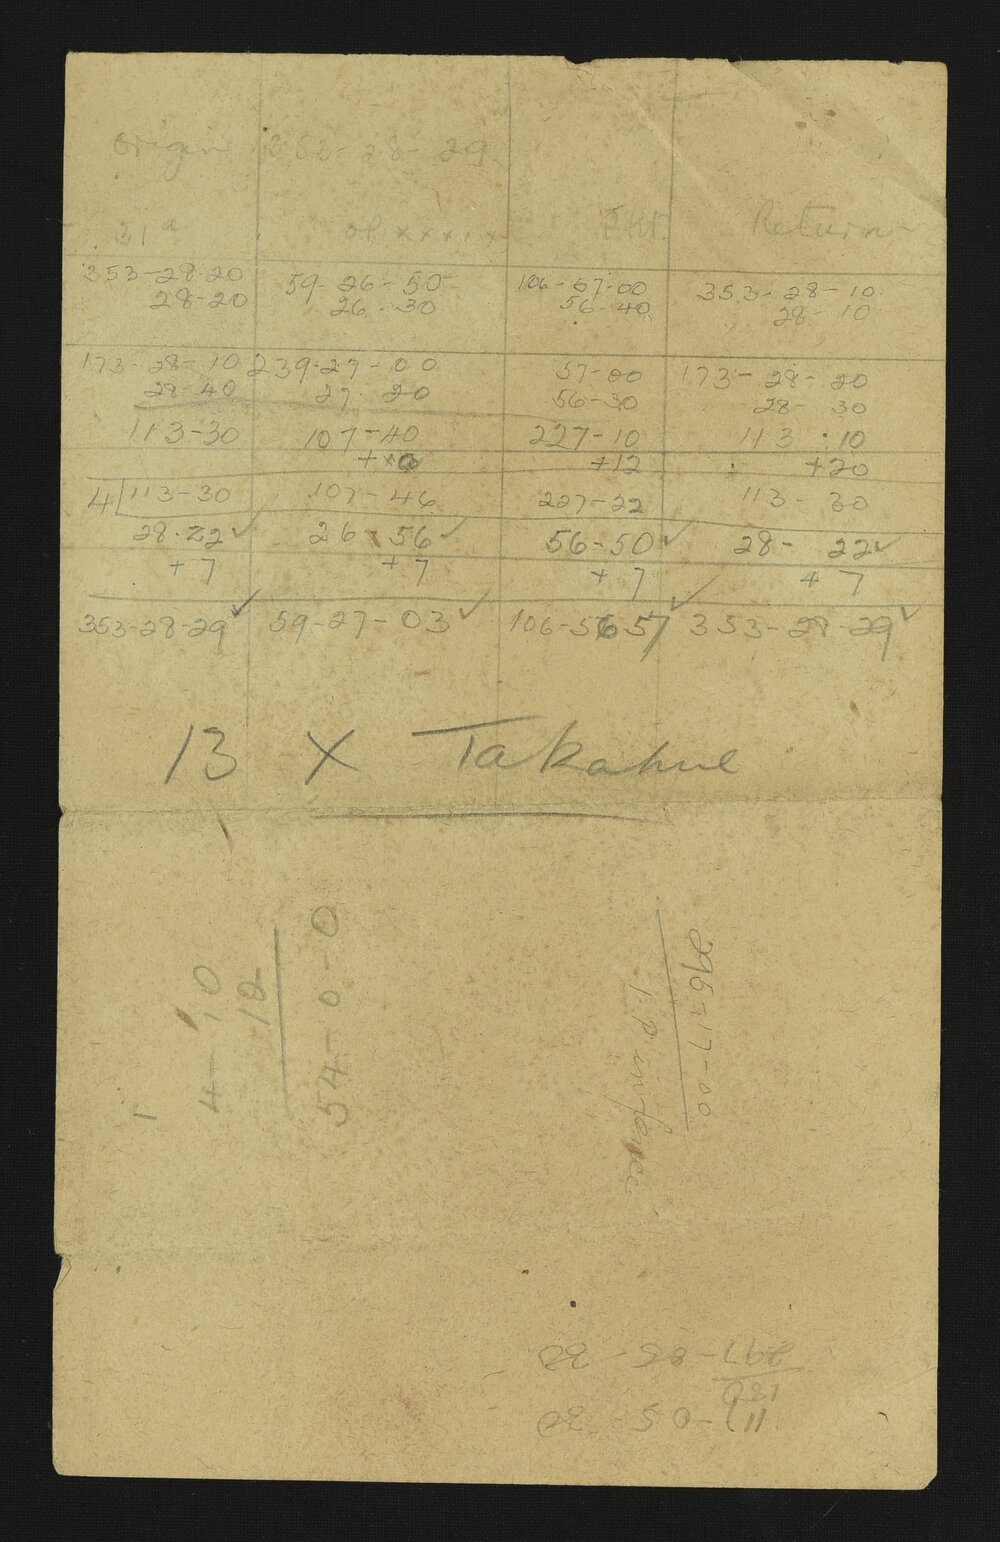 Origin 353-28-29
31ª OP xxxxx Return
353-28-20 59-26-50 106-57-00 353-28-10
28-20 26-30 56-40 28-10
173-28-10 239-27-00 57-00 173-28-20
28-40 27-20 56-30 28-30
113-30 107-40 227-10 113-10
+12 +20
4/113-30 107-46 227-22 113-30
28-22✓ 26-56✓ 56-50✓ 28-22✓
+7 +7 +7 +7
353-28-29✓ 59-27-03✓ 106-56-57✓ 353-28-29✓
13 X Takahue
4-10
12
54-0-0
296-17-00
I.P in fence
297-05-30
180
117-05-30